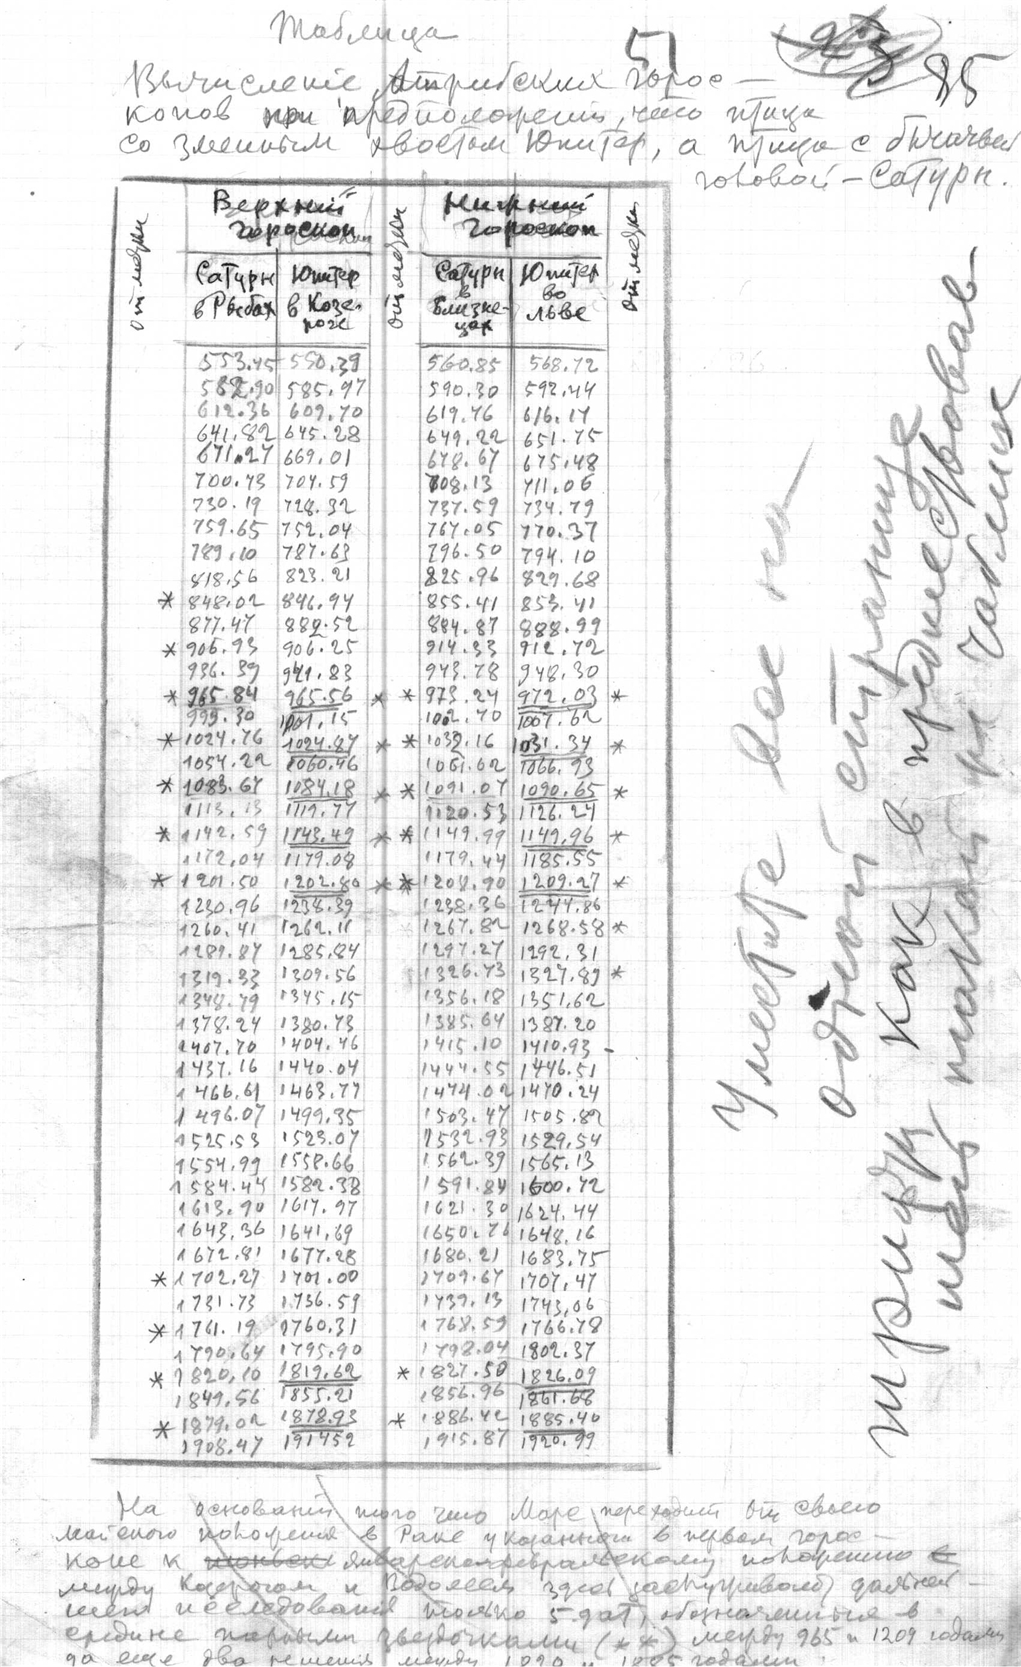 Таблица
51
85
Вычисленіе Атрибских горос-
копов при предположении, что птица
со змеиным хвостом Юпитер, а птица с бычачьей
головой — Сатурн.
отметки Верхний гороскоп отметки Нижний гороскоп отметки
Сатурн в Рыбах Юпитер в Козероге Сатурн в Близнецах Юпитер во льве
553.45 550.39 560.85 568.72
582.90 585.97 590.30 592.44
612.36 609.70 619.76 616.17
641.82 645.28 649.22 651.75
671.27 669.01 678.67 675.48
700.73 704.59 708.13 711.06
730.19 728.32 737.59 734.79
759.65 752.04 767.05 770.37
789.10 787.63 796.50 794.10
818.56 823.21 825.96 829.68
* 848.02 846.94 855.41 853.41
877.47 882.52 884.87 888.99
* 906.93 906.25 914.33 912.72
936.39 941.83 943.78 948.30
* 965.84 965.56 * * 973.24 972.03 *
999.30 1001.15 1002.70 1007.62
* 1024.76 1024.87 * * 1032.16 1031.34 *
1054.22 1060.46 1061.62 1066.93
* 1083.67 1084.18 * * 1091.07 1090.65 *
1113.13 1119.77 1120.53 1126.24
* 1142.59 1143.49 * * 1149.99 1149.96 *
1172.04 1179.08 1179.44 1185.55
* 1201.50 1202.80 * * 1208.90 1209.27 *
1230.96 1238.39 1238.36 1244.86
1260.41 1262.11 1267.82 1268.58 *
1289.87 1285.84 1297.27 1292.31
1319.33 1309.56 1326.73 1327.89 *
1348.79 1345.15 1356.18 1351.62
1378.24 1380.73 1385.64 1387.20
1407.70 1404.46 1415.10 1410.93 -
1437.16 1440.04 1444.55 1446.51
1466.61 1463.77 1474.02 1470.24
1496.07 1499.35 1503.47 1505.82
1525.53 1523.07 1532.93 1529.54
1554.99 1558.66 1562.39 1565.13
1584.44 1582.38 1591.84 1600.72
1613.90 1617.97 1621.30 1624.44
1643.36 1641.69 1650.76 1648.16
1672.81 1677.28 1680.21 1683.75
* 1702.27 1701.00 1709.67 1707.47
1731.73 1736.59 1739.13 1743,06
* 1761.19 1760.31 1768.59 1766.78
1790.64 1795.90 1798.04 1802.37
* 1820.10 1819.62 * 1827.50 1826.09
1849.56 1855.21 1856.96 1861.68
* 1879.02 1878.93 * 1886.42 1885.40
1908.47 191452 1915.87 1920.99
Уместите все на
одной странице
как в предшествовав
шей таблице
На основании того что Марс переходит от своего
майского положения в Раке указанном в первом горос-
копе к январско-февральскому положению
между Козерогом и Водолеем здесь заслуживают дальней-
шего исследования только 5 дат, обозначенные в
средине парными звездочками (* *) между 965 и 1209 годами
да еще два решения между 1820 и 1885 годами